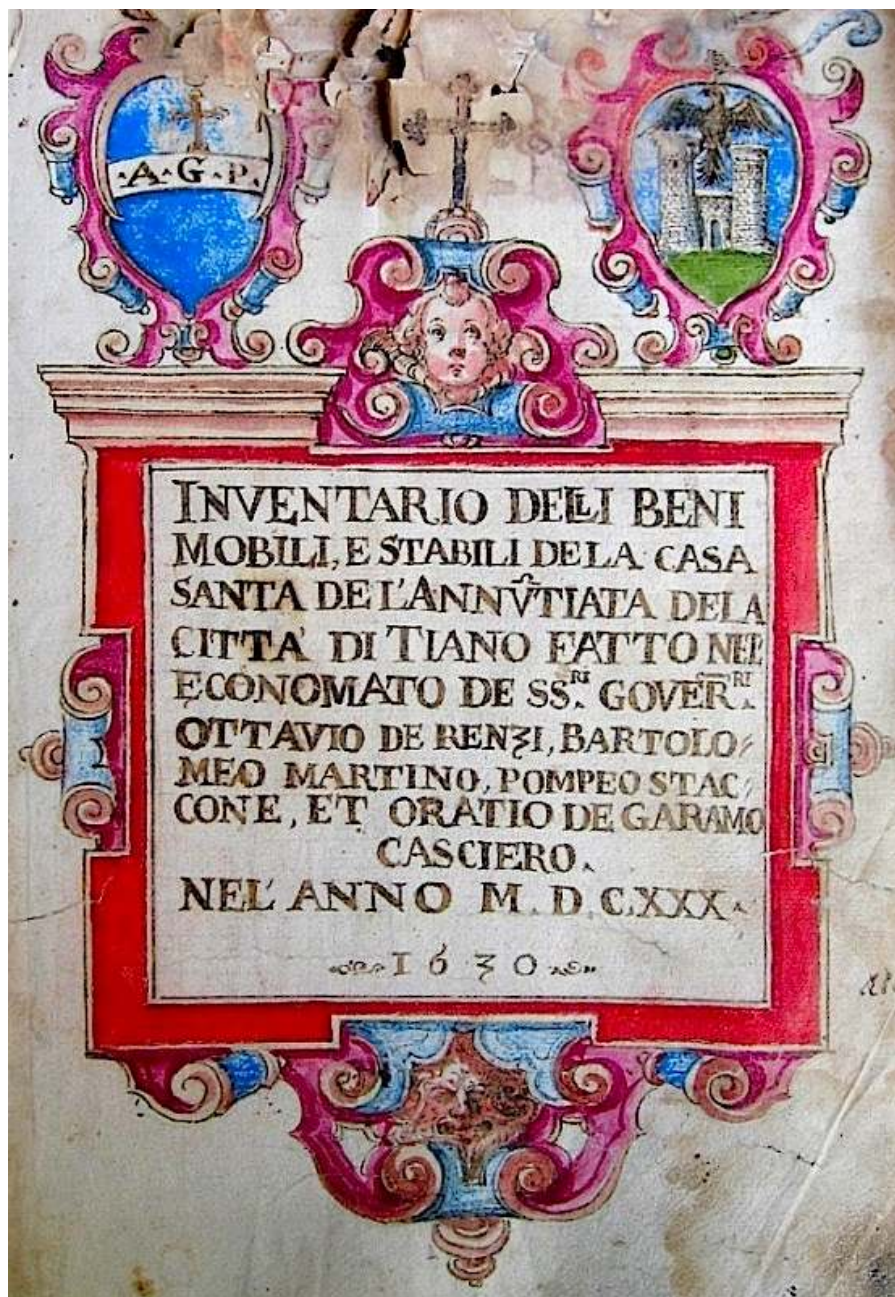 ·A·G·P·
INVENTARIO DELLI BENI
MOBILI, E STABILI DE LA CASA
SANTA DE L'ANNV̂TIATA DE LA
CITTA' DI TIANO FATTO NEL
ECONOMATO DE SS.RI GOVER̄.RI
OTTAVIO DE RENZI, BARTOLO=
MEO MARTINO, POMPEO STAC=
CONE, ET ORATIO DE GARAMO
CASCIERO.
NEL' ANNO M. D. C.XXX.
1630